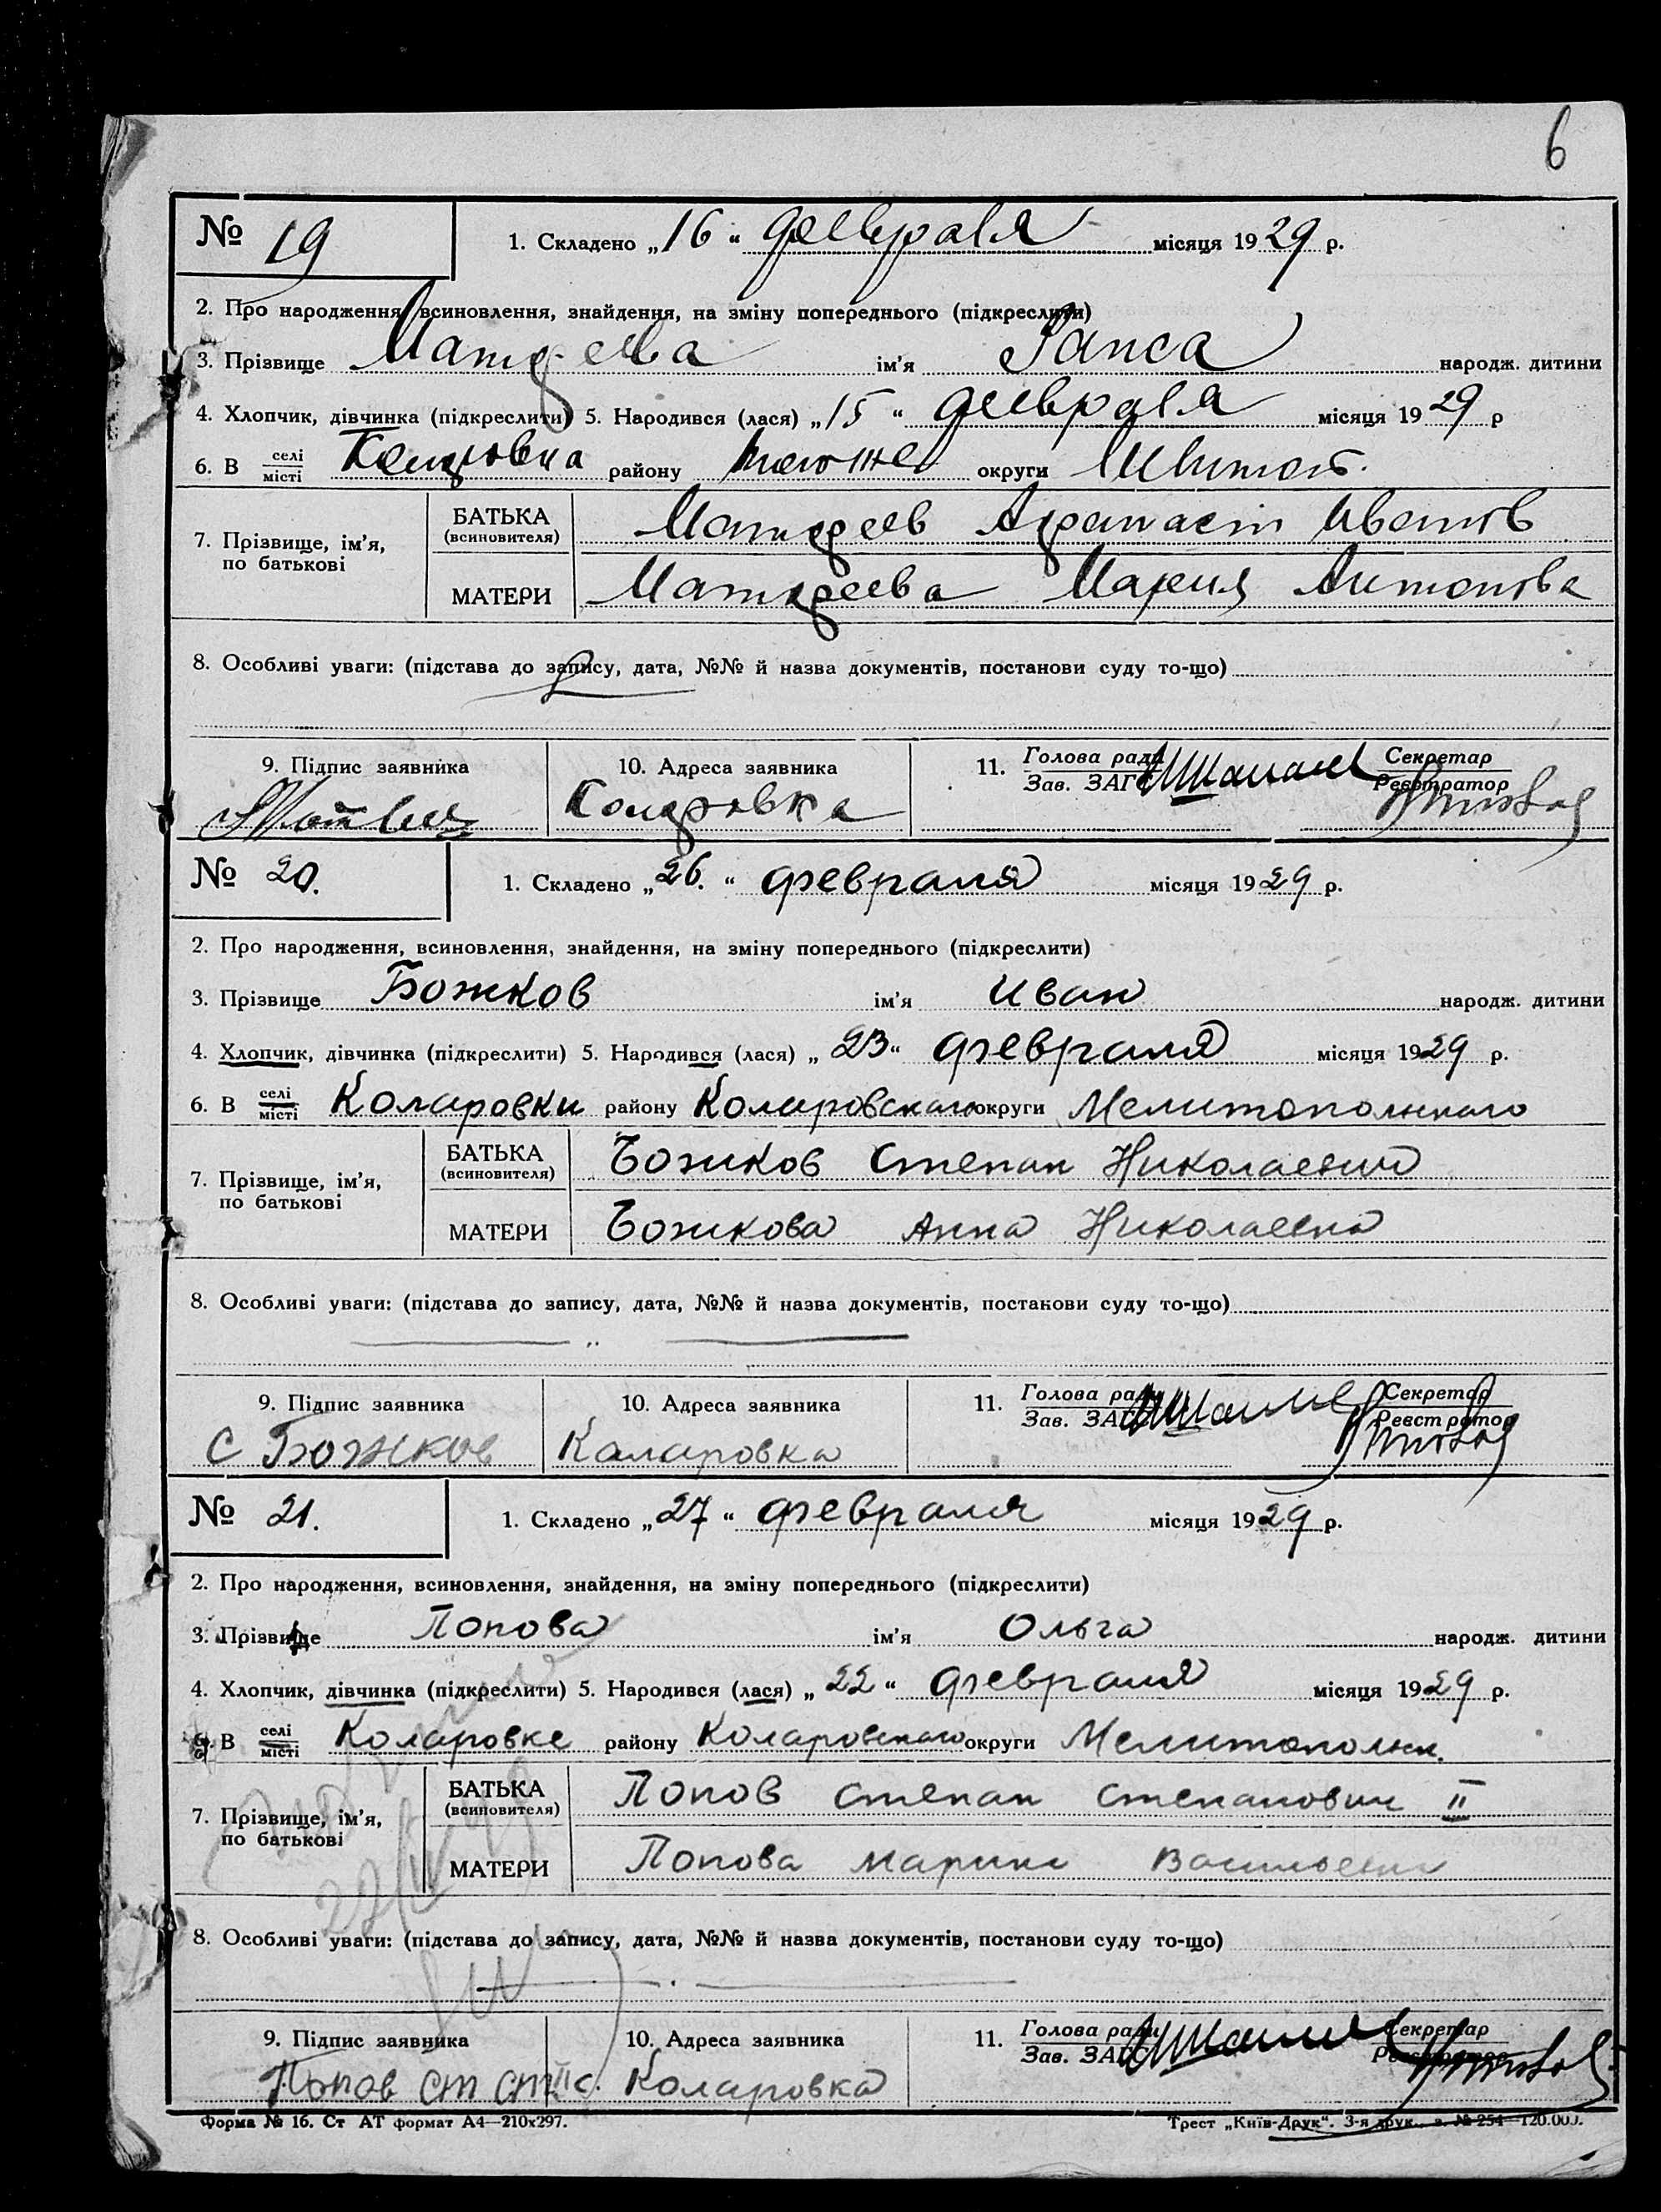 6
№ 19 1. Складено „16“ февраля місяця 1929 р.
2. Про народження, всиновлення, знайдення, на зміну попереднього (підкреслити)
3. Прізвище Матфеева ім'я Раиса народж. дитини
4. Хлопчик, дівчинка (підкреслити) 5. Народився (лася) „15“ февраля місяця 1929 р
6. В селі місті району тоже округи
7. Прізвище, ім'я, по батькові БАТЬКА (всиновителя) Матфеев Афанасий Иванов
МАТЕРИ Матфеева Мария Антонова
8. Особливі уваги: (підстава до запису, дата, №№ й назва документів, постанови суду то-що)
9. Підпис заявника 10. Адреса заявника 11. Голова ради Зав. ЗАГС Секретар Реєстратор
Коларовка
№ 20. 1. Складено „26.“ февраля місяця 1929 р.
2. Про народження, всиновлення, знайдення, на зміну попереднього (підкреслити)
3. Прізвище Божков ім'я Иван народж. дитини
4. Хлопчик, дівчинка (підкреслити) 5. Народився (лася) „23“ февраля місяця 1929 р.
6. В селі місті Коларовки району Коларовскаго округи Мелитопольскаго
7. Прізвище, ім'я, по батькові БАТЬКА (всиновителя) Божков Степан Николаевич
МАТЕРИ Божкова Анна Николаевна
8. Особливі уваги: (підстава до запису, дата, №№ й назва документів, постанови суду то-що)
9. Підпис заявника 10. Адреса заявника 11. Голова ради Зав. ЗАГС Секретар Реєстратор
С Божков Каларовка
№ 21. 1. Складено „27“ февраля місяця 1929 р.
2. Про народження, всиновлення, знайдення, на зміну попереднього (підкреслити)
3. Прізвище Попова ім'я Ольга народж. дитини
4. Хлопчик, дівчинка (підкреслити) 5. Народився (лася) „22“ февраля місяця 1929 р.
6. В селі місті Коларовке району Коларовскаго округи Мелитопольск.
7. Прізвище, ім'я, по батькові БАТЬКА (всиновителя) Попов Степан Степанович II
МАТЕРИ Попова Марина Васильевна
8. Особливі уваги: (підстава до запису, дата, №№ й назва документів, постанови суду то-що)
9. Підпис заявника 10. Адреса заявника 11. Голова ради Зав. ЗАГС Секретар Реєстратор
Попов Ст Ст II с. Коларовка
Форма № 16. Ст АТ формат А4—210х297. Трест „Київ-Друк“. 3-я друк., з. № 254—120.000.